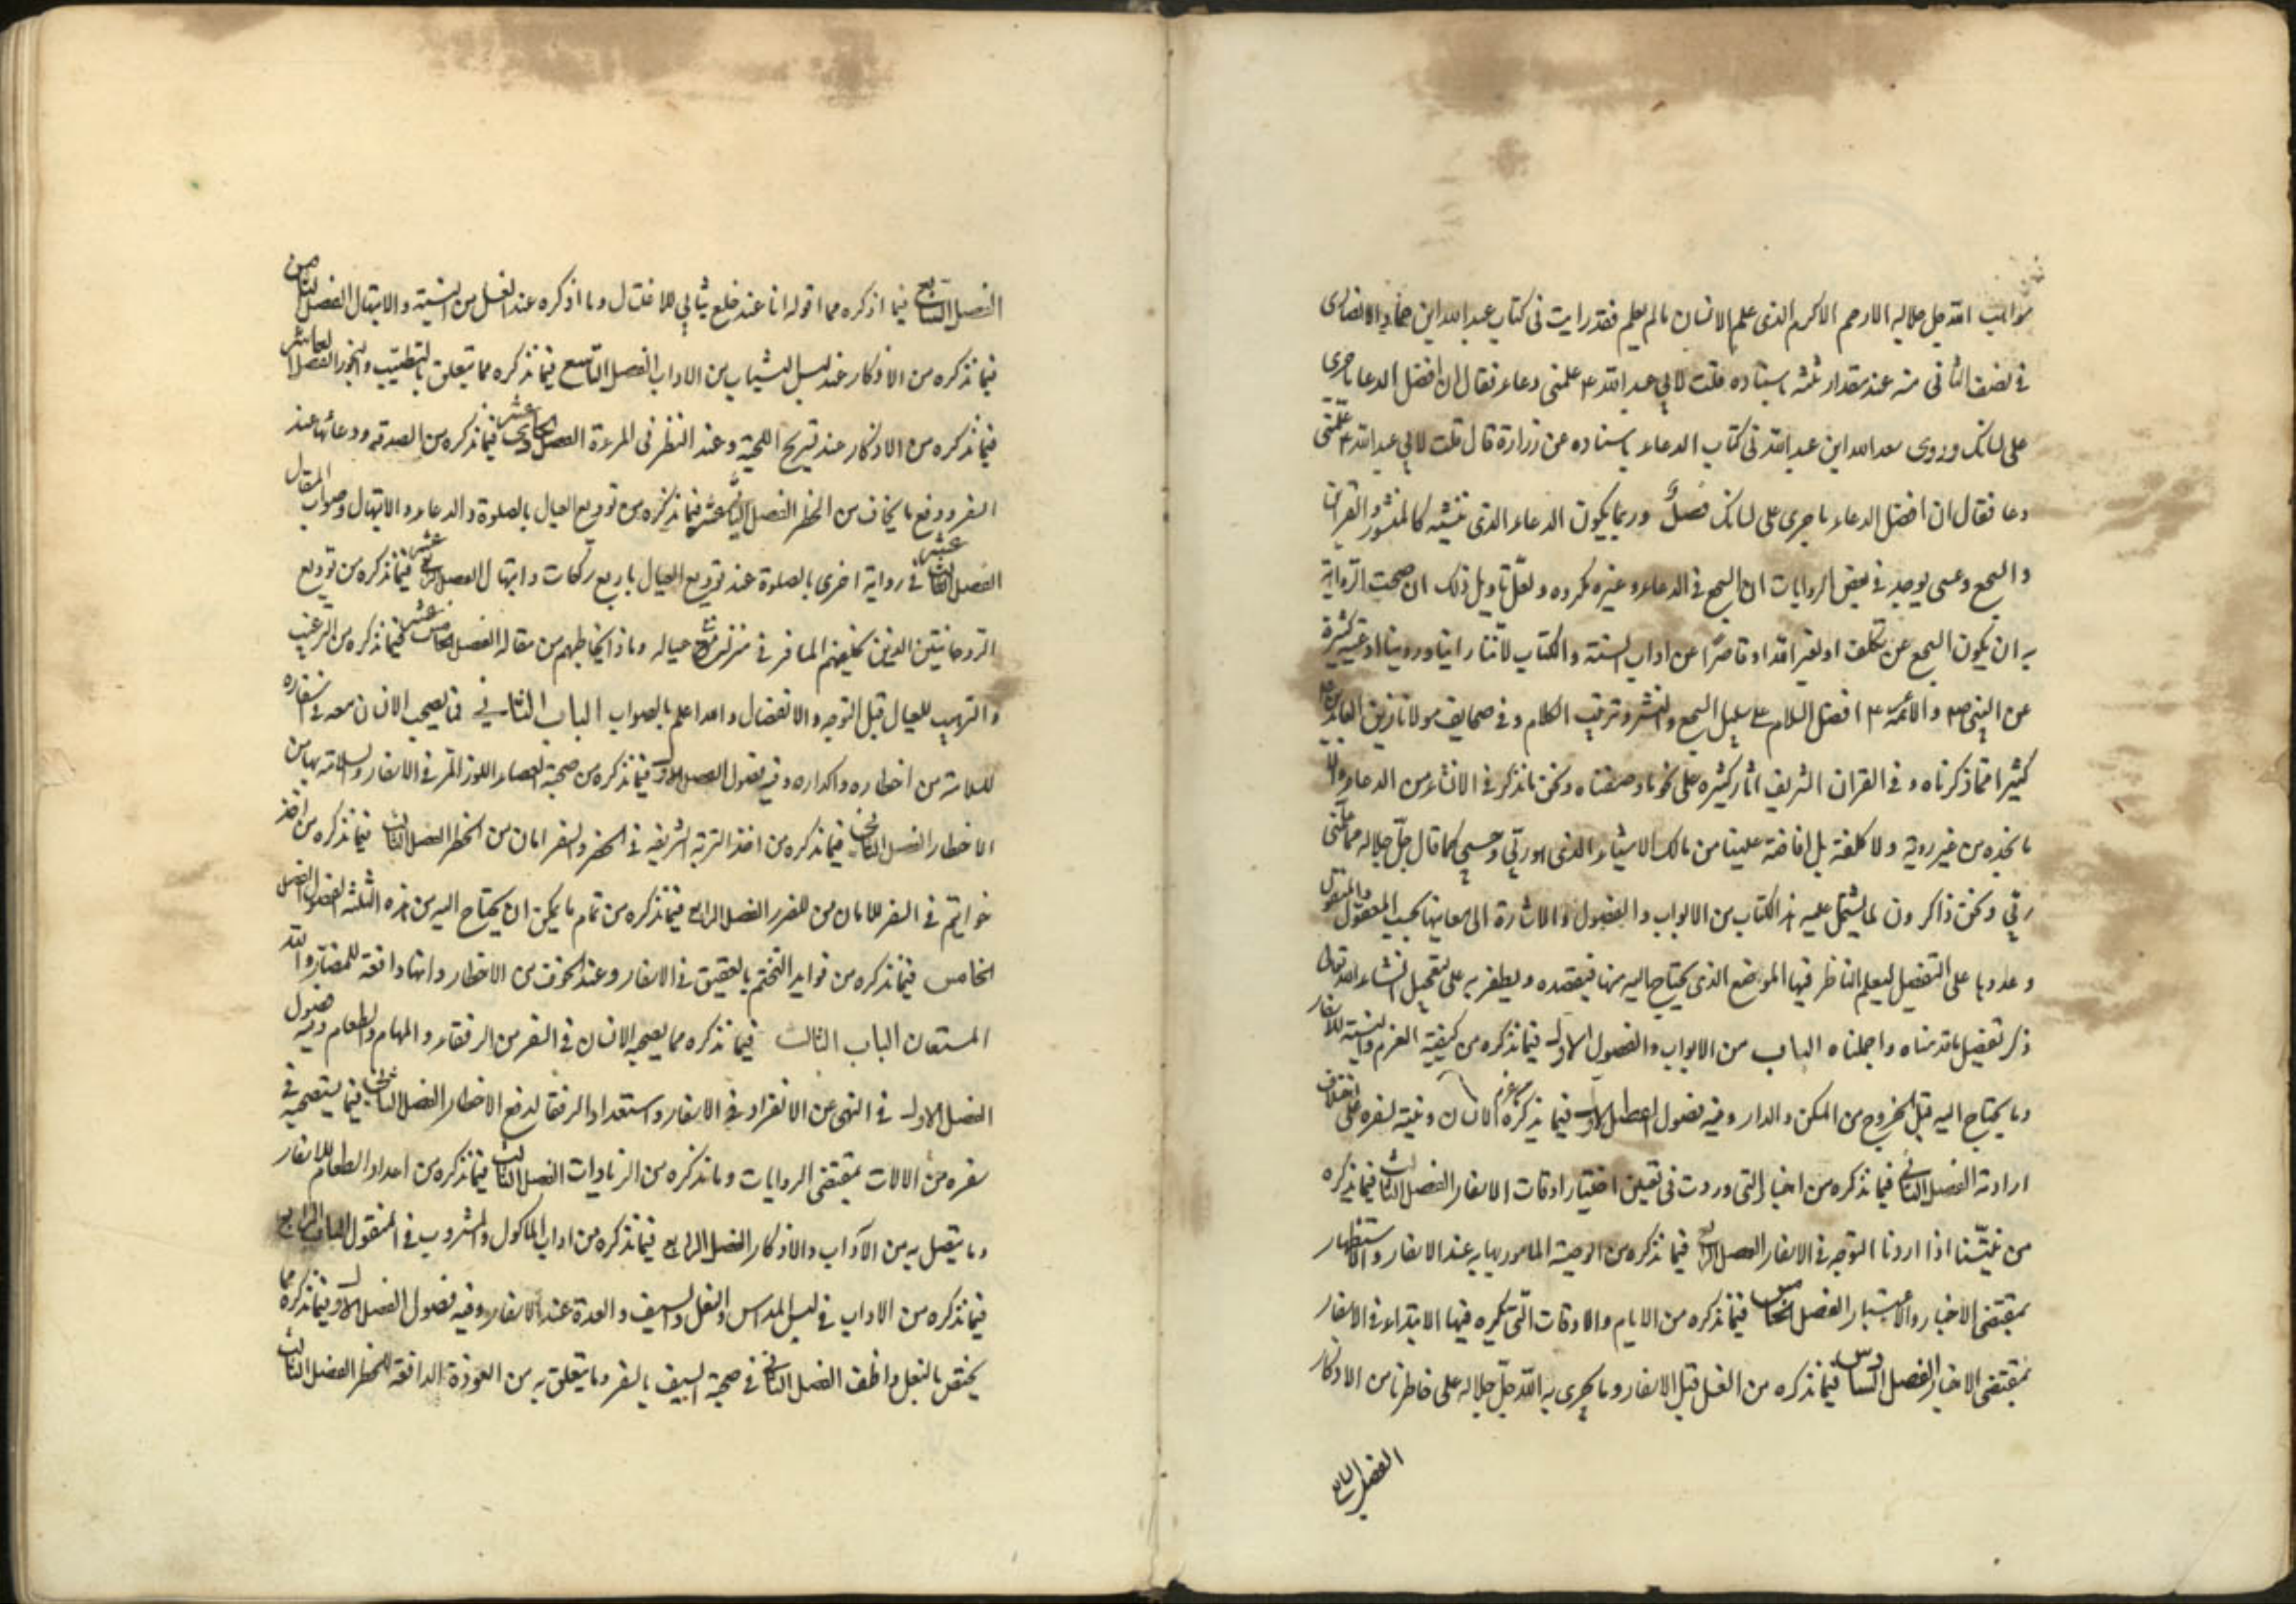 مواهب الله جل جلاله الارحم الاكرم الذى علم الانسان ما لم يعلم فقد رايت فى كتاب عبد الله ابن حماد الانصارى
فى نصف الثانى منه عند مقدار ثلثه باسناده قلت لابى عبد الله ع علمنى دعاء فقال ان افضل الدعا ما جرى
على لسانك وروى سعد الله ابن عبد الله فى كتاب الدعاء باسناده عن زرارة قال قلت لابى عبد الله ع علمنى
دعا فقال ان افضل الدعاء ما جرى على لسانك فصل وربما يكون الدعاء الذى ننشئه كالمنثور والقران
والسجع وعسى يوجد فى بعض الروايات ان السجع فى الدعاء وغيره مكروه ولعل تاويل ذلك ان صحت الرواية
به ان يكون السجع عن تكلف او لغير الله او قاصرا عن اداب السنة والكتاب لاننا راينا وروينا ادعية كثيرة
عن النبى ص والائمة ع افضل السلام على سبيل السجع والنشر وترتيب الكلام وفى صحايف مولانا زين العابدين
كثيرا مما ذكرناه وفى القران الشريف اثار كثيره على نحو ما وصفناه ونحن ما نذكر فى الانشاء من الدعاء الا
ما نجده من غير روية ولا كلفة بل افاضة علينا من مالك الاشياء الذى هو ربى وحسبى كما قال جل جلاله مما علمنى
ربى ونحن ذاكرون لما يشتمل عليه هذا الكتاب من الابواب والفصول والاشارة الى معانيها بحسب المعقول والمنقول
وعددها على التفصيل ليعلم الناظر فيها الموضع الذى يحتاج اليه منها فيقصده ويظفر به على تعجيل انشاء الله تعالى
ذكر تفصيل ما قدمناه واجملناه الباب من الابواب والفصول الاول فيما نذكره من كيفية العزم والنية للاسفار
وما يحتاج اليه قبل الخروج من المسكن والدار وفيه فصول الفصل الاول فيما نذكره من عزم الانسان ونيته لسفره على اختلاف
ارادته الفصل الثانى فيما نذكره من اخبار التى وردت فى تعيين اختيار اوقات الاسفار الفصل الثالث فيما نذكره
من نيتنا اذا اردنا التوجه فى الاسفار الفصل الرابع فيما نذكره من الوصية المامور بها به عند الاسفار والاستظهار
بمقتضى الاخبار والاعتبار الفصل الخامس فيما نذكره من الايام والاوقات التى يكره فيها الابتداء فى الاسفار
بمقتضى الاخبار الفصل السادس فيما نذكره من الغسل قبل الاسفار وما يجرى به الله جل جلاله على خاطرنا من الاذكار
الفصل السابع
الفصل السابع فيما اذكره مما اقوله انا عند خلع ثيابى للاغتسال وما اذكره عند الغسل من النية والابتهال الفصل الثامن
فيما نذكره من الاذكار عند لبس الثياب من الاداب الفصل التاسع فيما نذكره مما يتعلق بالتطييب والبخور الفصل العاشر
فيما نذكره من الاذكار عند تسريح اللحية وعند النظر فى المرءة الفصل الحادى عشر فيما نذكره من الصدقه ودعائها عند
السفر ودفع ما يخاف من الخطر الفصل الثانى عشر فيما نذكره من توديع العيال بالصلوة والدعاء والابتهال وصواب المقال
الفصل الثالث عشر فى رواية اخرى بالصلوة عند توديع العيال باربع ركعات وابتهال الفصل الرابع عشر فيما نذكره من توديع
الروحانيين الذين يخلفهم المسافر فى منزله مع عياله وماذا يخاطبهم من مقاله الفصل الخامس عشر فيما نذكره من الترغيب
والترهيب للعيال قبل التوجه والانفصال والله اعلم بالصواب الباب الثانى فيما يصحب الانسان معه فى اسفاره
للسلامة من اخطاره واكداره وفيه فصول الفصل الاول فيما نذكره من صحبة العصاء اللوز المر فى الاسفار والسلامة بها من
الاخطار الفصل الثانى فيما نذكره من اخذ التربة الشريفة فى الحضر والسفر امان من الخطر الفصل الثالث فيما نذكره من اخذ
خواتيم فى السفر للامان من الضرر الفصل الرابع فيما نذكره من تمام ما يمكن ان يحتاج اليه من هذه الثلثة الفصول الفصل
الخامس فيما نذكره من فوايد التختم بالعقيق فى الاسفار وعند الخوف من الاخطار وانها دافعة للمضار والله
المستعان الباب الثالث فيما نذكره مما يصحبه الانسان فى السفر من الرفقاء والمهام والطعام وفيه فصول
الفصل الاول فى النهى عن الانفراد فى الاسفار واستعداد الرفقا لدفع الاخطار الفصل الثانى فيما يستصحبه فى
سفره من الالات بمقتضى الروايات وما نذكره من الزيادات الفصل الثالث فيما نذكره من اعداد الطعام للاسفار
وما يتصل به من الآداب والاذكار الفصل الرابع فيما نذكره من اداب الماكول والمشروب فى المنقول الباب الرابع
فيما نذكره من الاداب فى لبس المداس والنعل والسيف والعدة عند الاسفار وفيه فصول الفصل الاول فيما نذكره مما
يختص بالنعل والخف الفصل الثانى فى صحبة السيف بالسفر وما يتعلق به من العوذة الدافعة للخطر الفصل الثالث